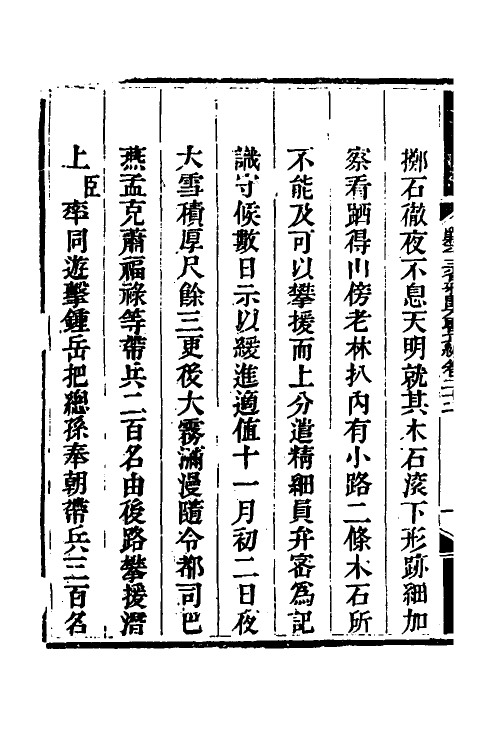 擲石徹夜不息天明就其木石滾下形跡細加
察看跴得山傍老林扒內有小路二條木石所
不能及可以攀援而上分遣精細員弁密爲記
識守候數日示以緩進適值十一月初二日夜
大雪積厚尺餘三更後大霧滿漫隨令都司巴
燕孟克蕭福祿等帶兵二百名由後路攀援潛
上臣率同遊擊鍾岳把總孫奉朝帶兵三百名